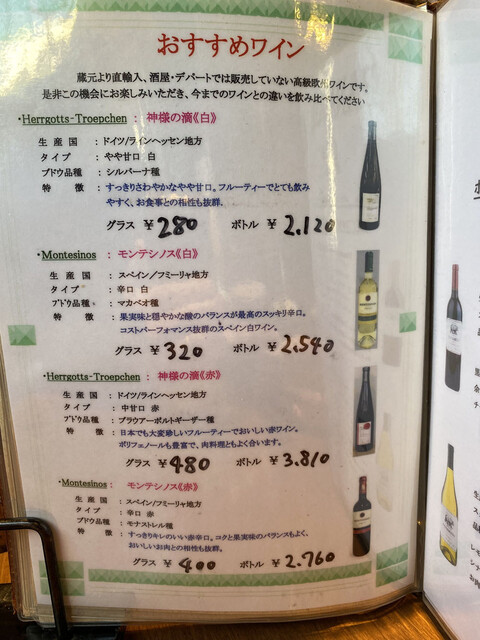 おすすめワイン
蔵元より直輸入、酒屋・デパートでは販売していない高級欧州ワインです。
是非この機会にお楽しみいただき、今までのワインとの違いを飲み比べてください
・Herrgotts-Troepchen : 神様の滴《白》
生産国 : ドイツ/ラインヘッセン地方
タイプ : やや甘口 白
ブドウ品種 : シルバーナ種
特徴 : すっきりさわやかなやや甘口。フルーティーでとても飲み
やすく、お食事との相性も抜群。
グラス ¥280 ボトル ¥2.120
・Montesinos : モンテシノス《白》
生産国 : スペイン/フミーリャ地方
タイプ : 辛口 白
ブドウ品種 : マカベオ種
特徴 : 果実味と穏やかな酸のバランスが最高のスッキリ辛口。
コストパーフォマンス抜群のスペイン白ワイン。
グラス ¥320 ボトル ¥2.540
・Herrgotts-Troepchen : 神様の滴《赤》
生産国 : ドイツ/ラインヘッセン地方
タイプ : 中甘口 赤
ブドウ品種 : ブラウアーポルトギーザー種
特徴 : 日本でも大変珍しいフルーティーでおいしい赤ワイン。
ポリフェノールも豊富で、肉料理ともよく合います。
グラス ¥480 ボトル ¥3.810
・Montesinos : モンテシノス《赤》
生産国 : スペイン/フミーリャ地方
タイプ : 辛口 赤
ブドウ品種 : モナストレル種
特徴 : すっきりキレのいい赤辛口。コクと果実味のバランスもよく、
おいしいお肉との相性も抜群。
グラス ¥400 ボトル ¥2.760